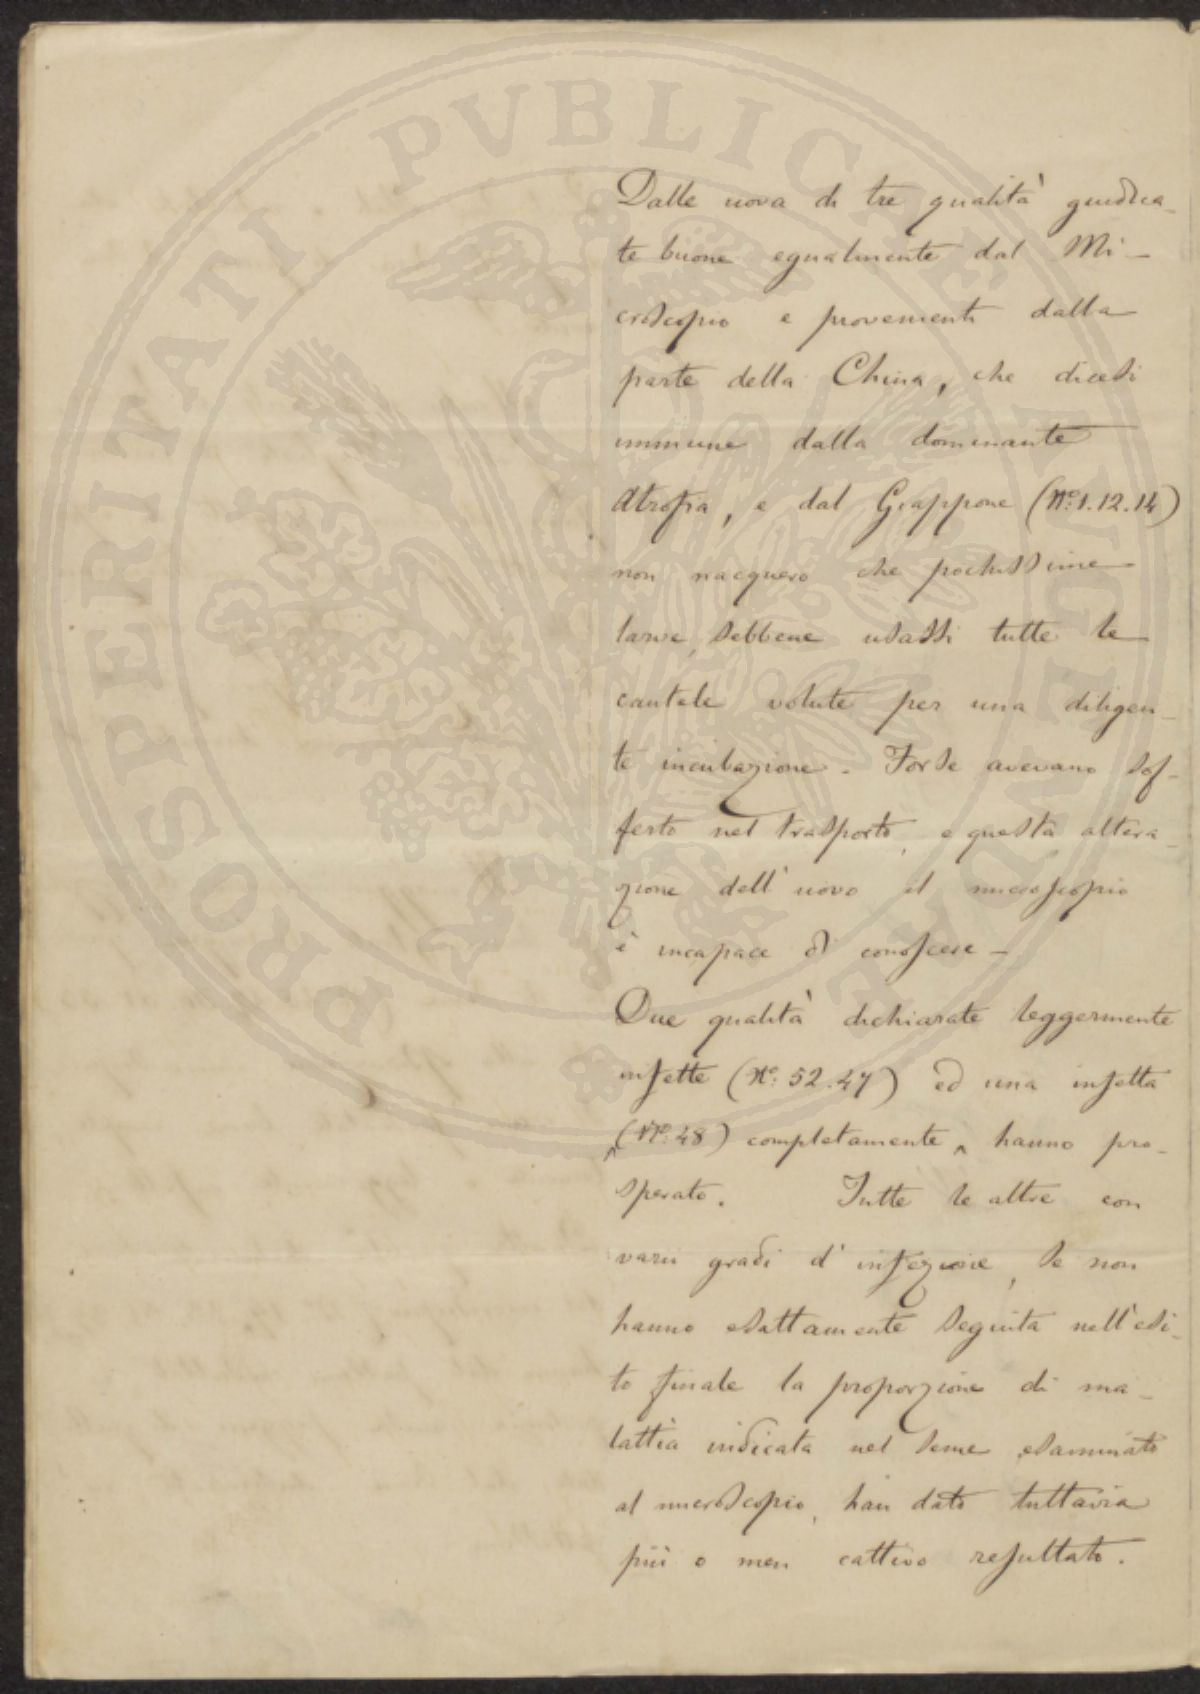 Dalle uova di tre qualità giudica-
te buone egualmente dal Mi-
croscopio e provenienti dalla
parte della China, che dicesi
immune dalla dominante
Atrofia, e dal Giappone (No. 1.12.14)
non nacquero che pochissime
larve, sebbene usassi tutte le
cautele volute per una diligen-
te incubazione. Forse avevano sof-
ferto nel trasporto, e questa altera-
zione dell'uovo il microscopio
è incapace di conoscere -
Due qualità dichiarate leggermente
infette (No. 52.47) ed una infetta
(No. 48) completamente, hanno pro-
sperato. Tutte le altre con
varii gradi d'infezione, se non
hanno esattamente seguita nell'esi-
to finale la proporzione di ma-
lattia indicata nel seme esaminato
al microscopio, han dato tuttavia
più o men cattivo resultato.
PROSPERITATI PVBLICAE AVGENDAE